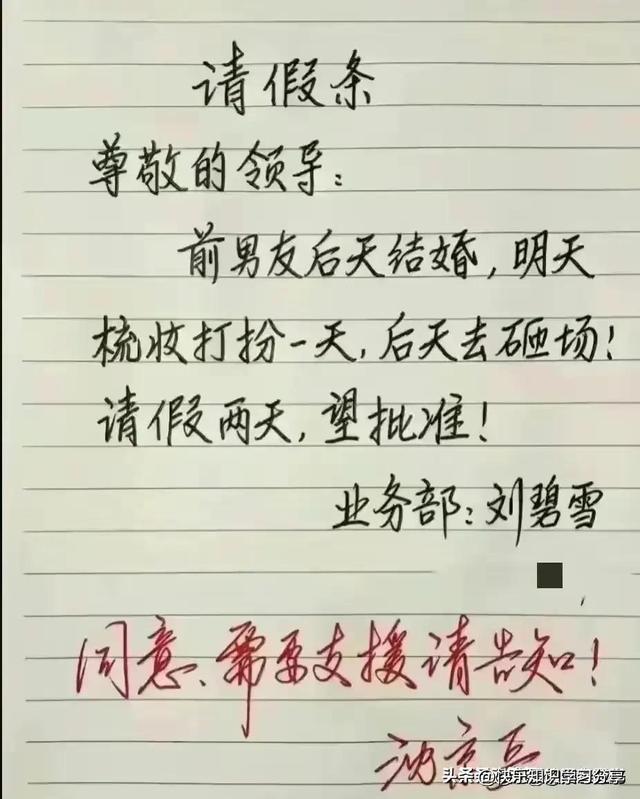 请假条
尊敬的领导：
前男友后天结婚，明天
梳妆打扮一天，后天去砸场！
请假两天，望批准！
业务部：刘碧雪
同意、需要支援请告知！
头条